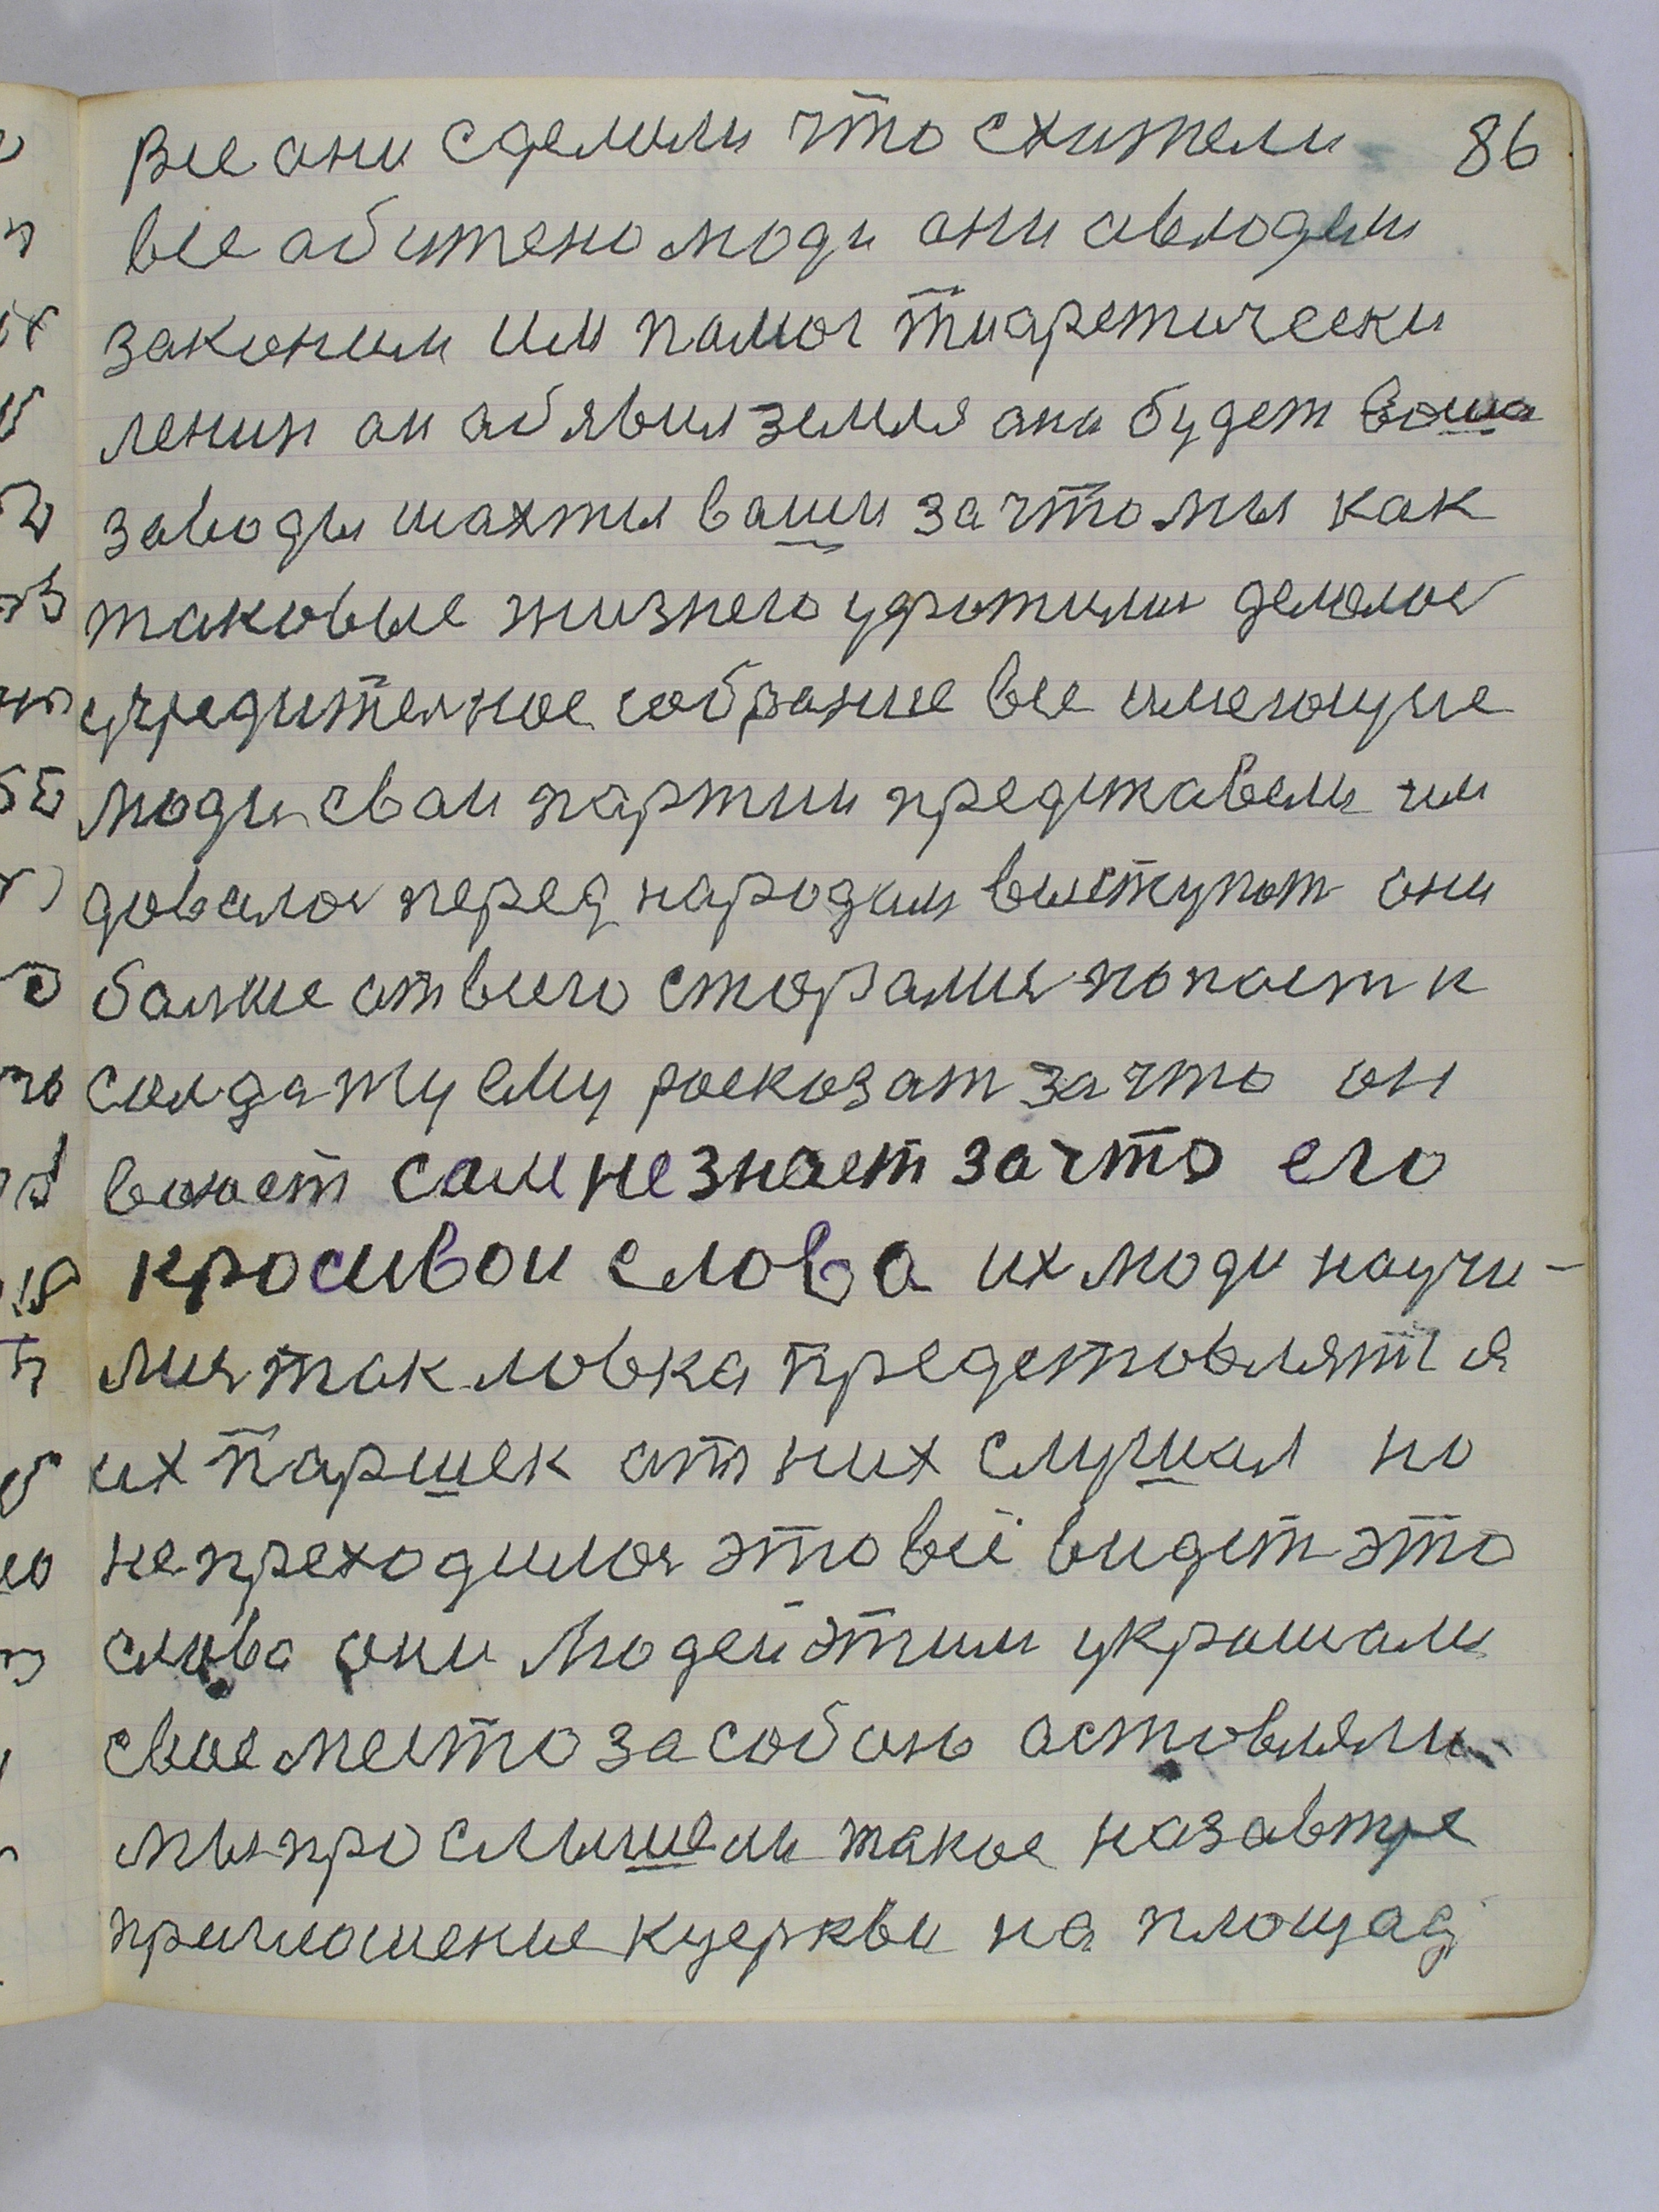 все они сделали что схители 86
все абитено люди они авлюдели
законим им памог тиаретически
ленин ан абявил земля ана будет ваша
заводы шахты ваши за что мы как
таковые жизнего утратили делалос
учредителное собрание все имеющие
люди сваи партии представели им
довалос перед народам выступат они
балше атвсего старалис попаст к
салдату ему росказат за что он
воюет сам не знает зачто его
красиваи слова их люди научи-
лис так ловка представлят я
их Паршек ат них слушал но
непреходилос это всё видет это
слова они людей этим украшали
свое место за собою аставляли
мы прослышели такое назавтре
приглошение кцеркви на площад